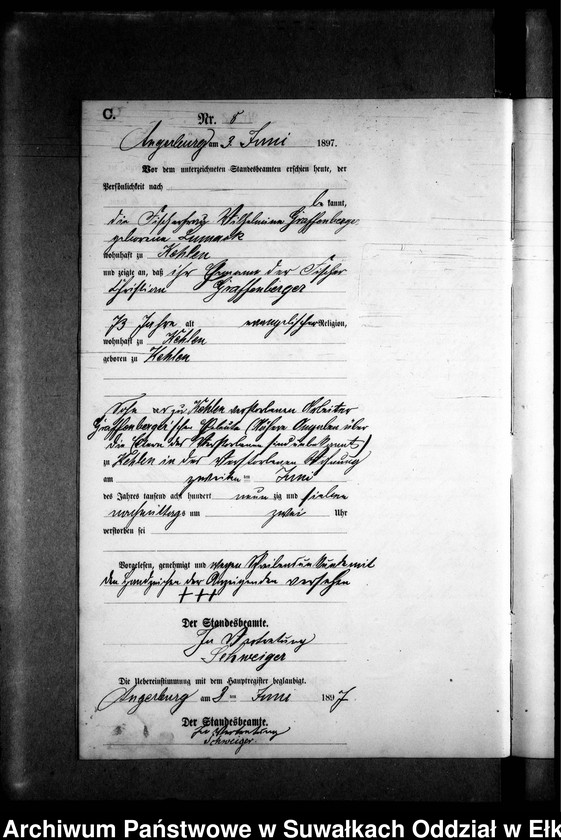 C.
Nr. 8
Angerburg am 3. Juni 1897.
Vor dem unterzeichneten Standesbeamten erschien heute, der
Persönlichkeit nach
bekannt,
die Fischerfrau Wilhelmine Graffenberger
geborene
wohnhaft zu Kehlen
und zeigte an, daß ihr Ehemann der Fischer
Christian Graffenberger
73 Jahre alt evangelischer Religion,
wohnhaft zu Kehlen
geboren zu Kehlen
Sohn der zu Kehlen verstorbenen Arbeiter
Graffenberger'schen Eheleute (Nähere Angaben über
die Eltern des Verstorbenen sind unbekannt)
zu Kehlen in der Verstorbenen Wohnung
am zweiten Juni
des Jahres tausend acht hundert neun zig und sieben
nachmittags um zwei Uhr
verstorben sei
Vorgelesen, genehmigt und wegen Schreibensunkunde mit
den Handzeichen der Anzeigenden versehen
+++
Der Standesbeamte.
In Vertretung
Schweiger
Die Uebereinstimmung mit dem Hauptregister beglaubigt.
Angerburg am Juni 1897
Der Standesbeamte.
In Vertretung
Schweiger
Archiwum Państwowe w Suwałkach Oddział w Ełk